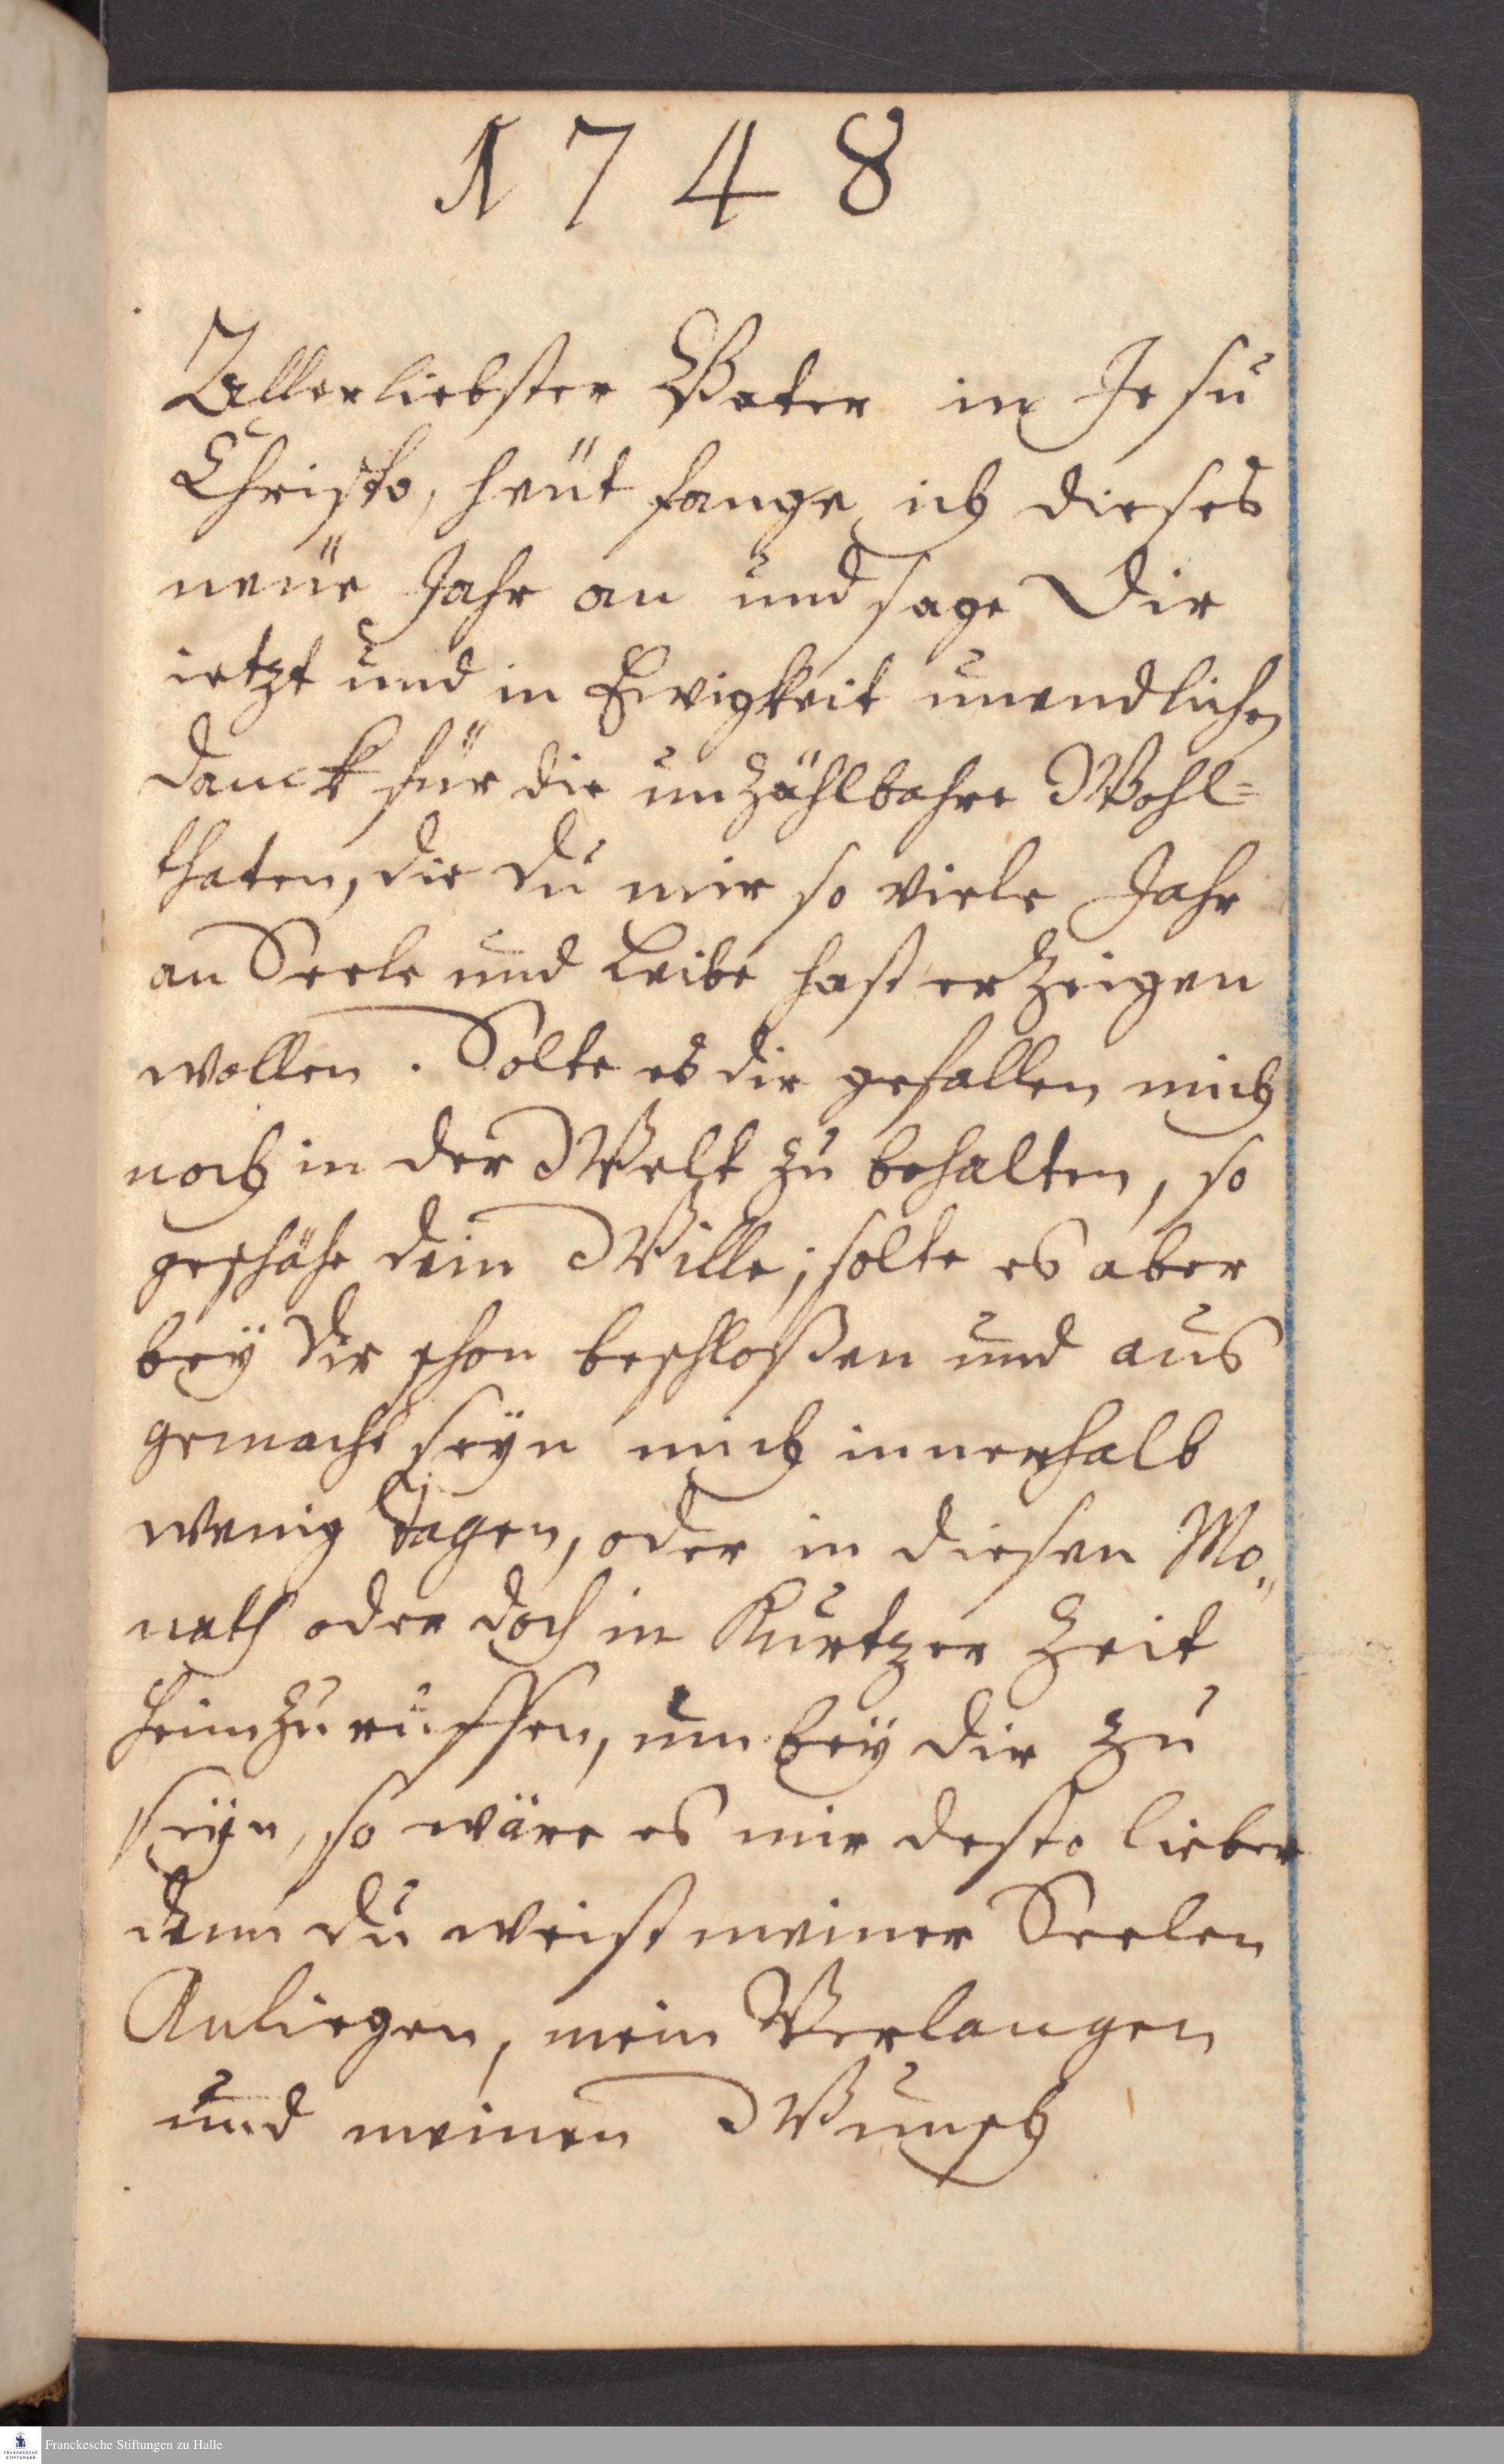 1748
Allerliebster Vater in Jesu
Christo, heüt fange ich dieses
neüe Jahr an und sage Dir
ietzt und in Ewigkeit unendlichen
Danck für die unzählbahre Wohl=
thaten, die du mir so viele Jahr
an Seele und Leibe hast erzeigen
wollen. Solte es dir gefallen mich
noch in der Welt zu behalten, so
geschähe dein Wille; solte es aber
beÿ Dir schon beschloßen und aus
gemacht seÿn mich innerhalb
wenig Tagen, oder in diesen Mo„
nath oder doch in Kurtzer Zeit
heimzuruffen, um beÿ dir zu
seÿn, so wäre es mir desto lieber
denn du weist meiner Seelen
Anliegen, mein Verlangen
und meinen Wunsch
FRANCKESCHE
STIFTUNGEN
Franckesche Stiftungen zu Halle